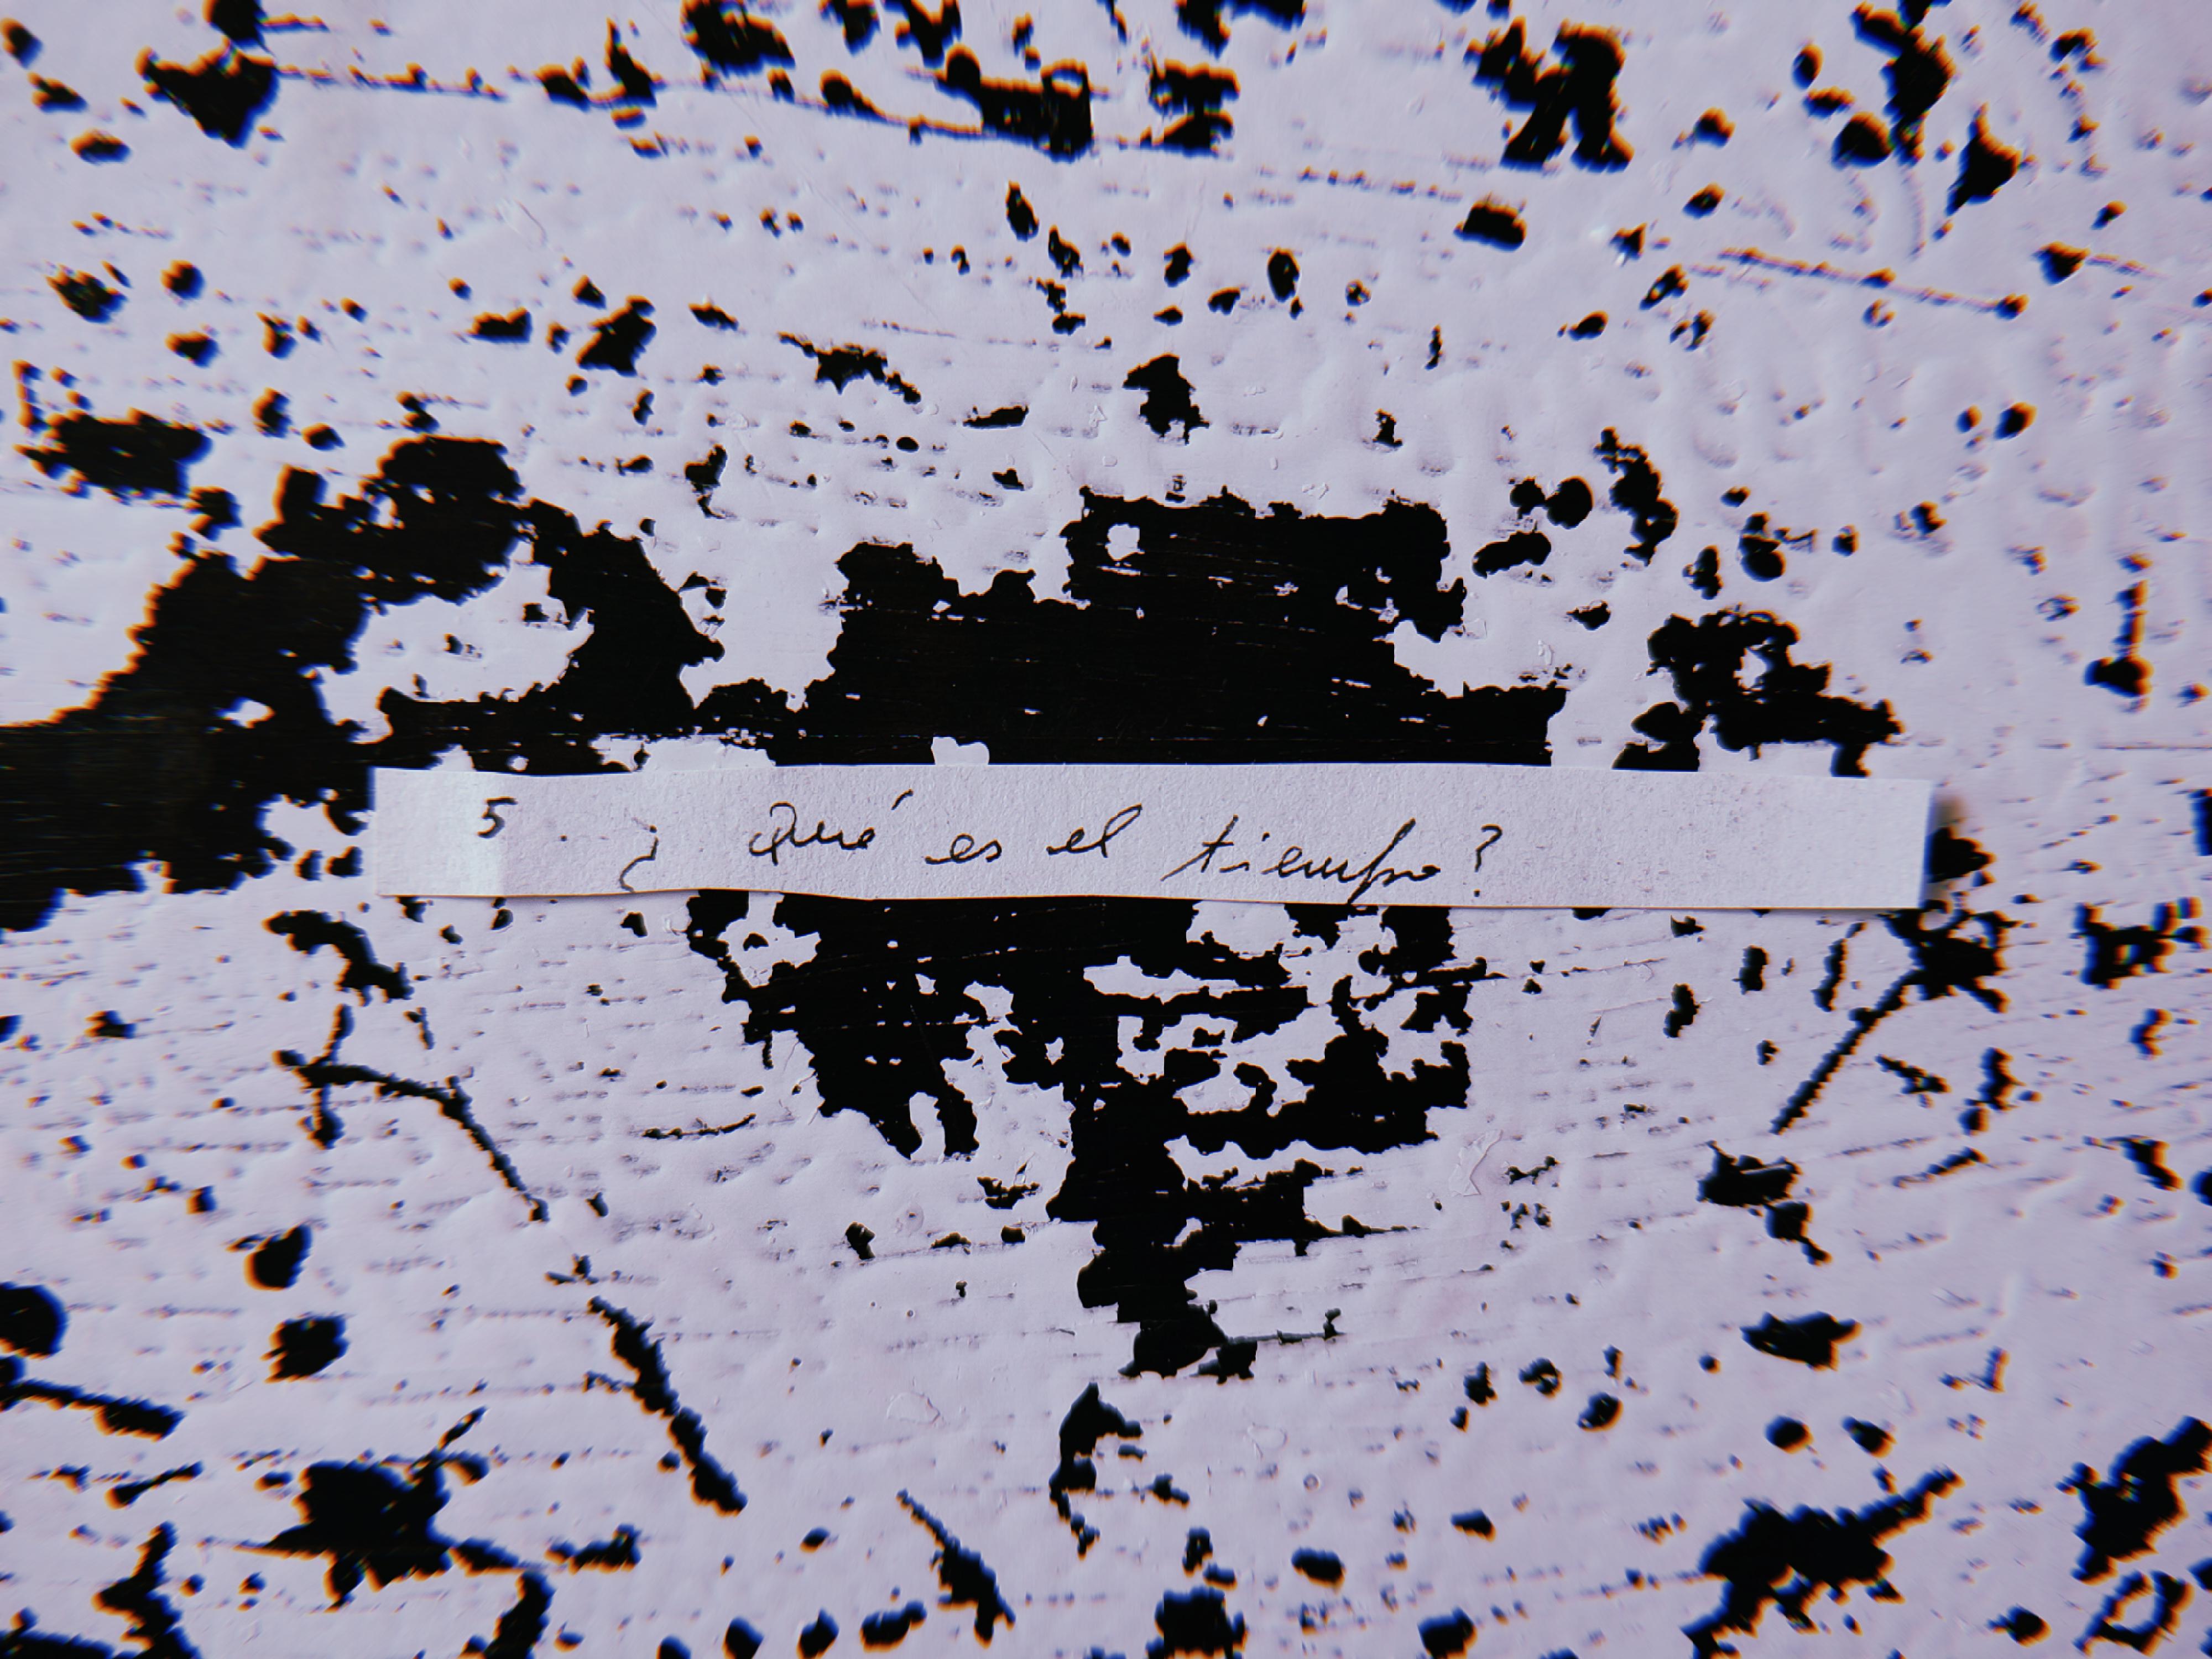 5 . ¿ Qué es el tiempo?